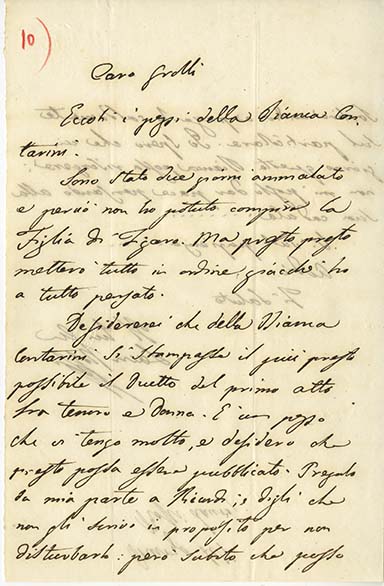 10
Caro Grolli
Eccoti i pezzi della Bianca Con-
tarini.
Sono stato due giorni ammalato
e perciò non ho potuto compire la
Figlia di Figaro. Ma presto presto
metterò tutto in ordine, giacchè ho
a tutto pensato.
Desidererei che della Bianca
Contarini si stampasse il più presto
possibile il Duetto del primo atto
fra tenore e Donna. È un pezzo
che ci tengo molto, e desidero che
presto possa essere pubblicato. Pregalo
da mia parte a Ricordi, e digli che
non gli scrivo in proposito per non
disturbarlo: però subito che possa